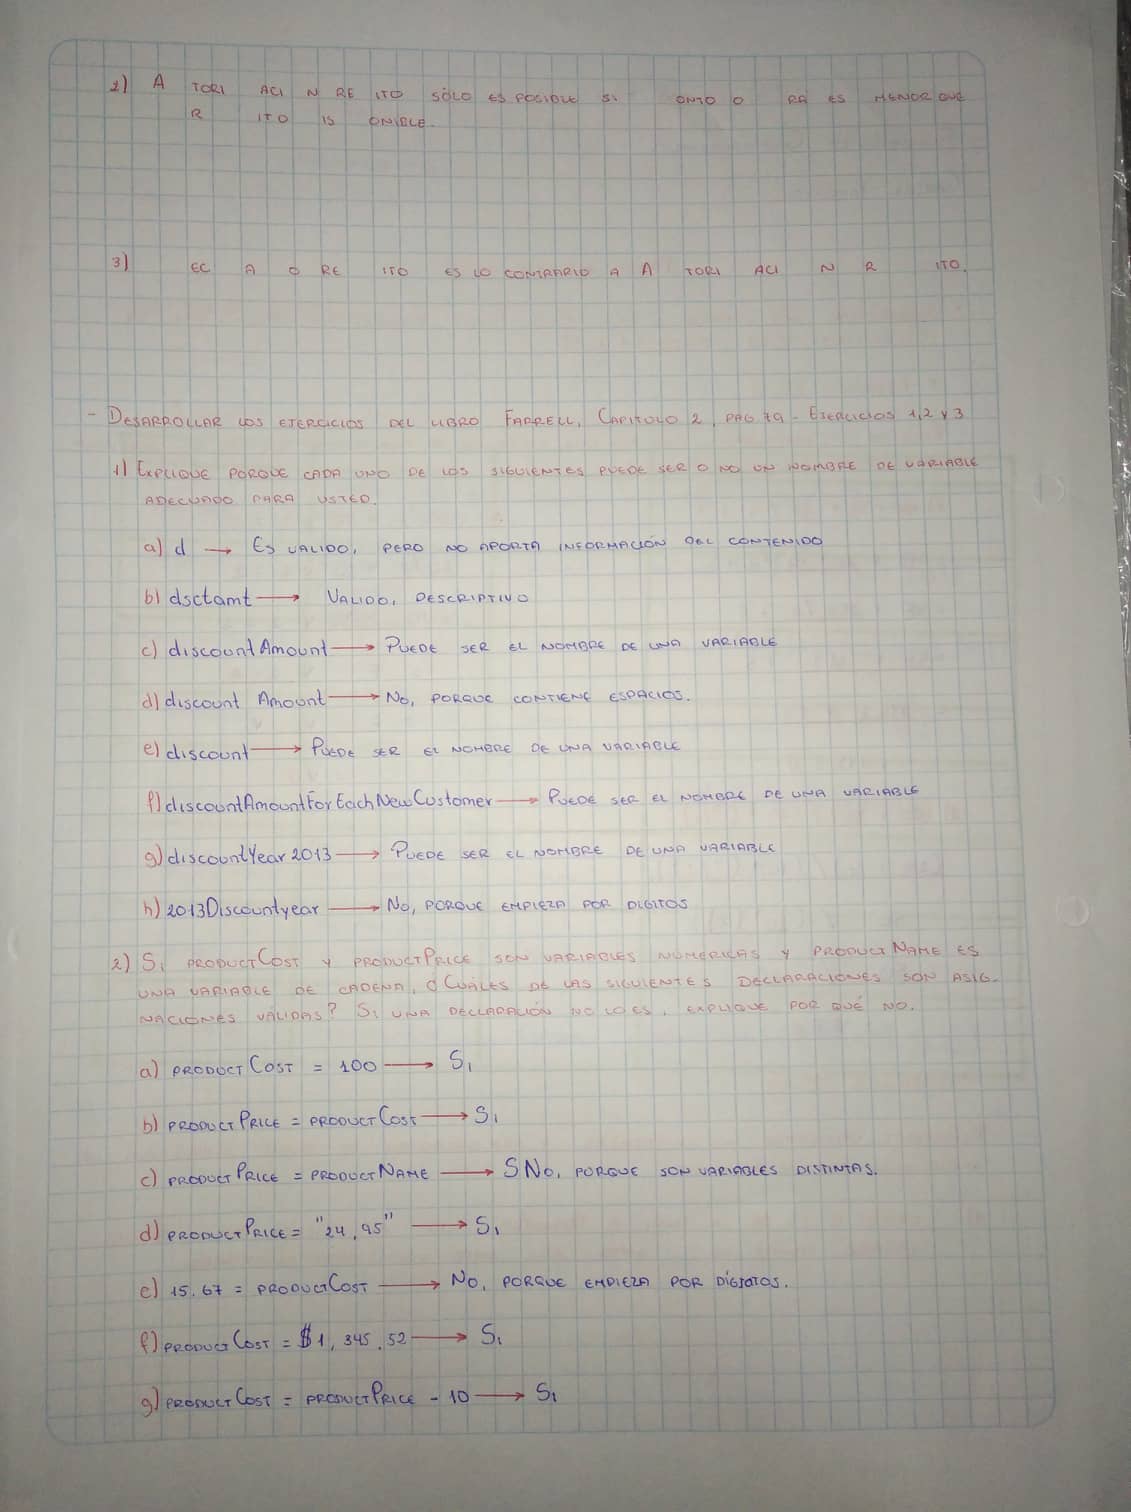 2) A TORI ACI N RE ITO SÓLO ES POCIBLE SI ONTO O RA ES MENOR QUE
R ITO IS ONIBLE.
3) EC A O RE ITO ES LO CONTRARIO A A TORI ACI N R ITO.
- DESARROLLAR LOS EJERCICIOS DEL LIBRO FARRELL, CAPITULO 2, PAG 79 - EJERCICIOS 1,2 Y 3
1) EXPLIQUE PORQUE CADA UNO DE LOS SIGUIENTES PUEDE SER O NO UN NOMBRE DE VARIABLE
ADECUADO PARA USTED.
a) d → ES VALIDO, PERO NO APORTA INFORMACIÓN DEL CONTENIDO
b) dsctamt → VALIDO, DESCRIPTIVO
c) discountAmount → PUEDE SER EL NOMBRE DE UNA VARIABLE
d) discount Amount → NO, PORQUE CONTIENE ESPACIOS.
e) discount → PUEDE SER EL NOMBRE DE UNA VARIABLE
f) discountAmountForEachNewCustomer → PUEDE SER EL NOMBRE DE UNA VARIABLE
g) discountYear2013 → PUEDE SER EL NOMBRE DE UNA VARIABLE
h) 2013Discountyear → NO, PORQUE EMPIEZA POR DIGITOS
2) SI PRODUCTCOST Y PRODUCTPRICE SON VARIABLES NUMERICAS Y PRODUCTNAME ES
UNA VARIABLE DE CADENA, ¿CUÁLES DE LAS SIGUIENTES DECLARACIONES SON ASIG-
NACIONES VÁLIDAS? SI UNA DECLARACIÓN NO LO ES, EXPLIQUE POR QUÉ NO.
a) PRODUCTCOST = 100 → SI
b) PRODUCTPRICE = PRODUCTCOST → SI
c) PRODUCTPRICE = PRODUCTNAME → SNO, PORQUE SON VARIABLES DISTINTAS.
d) PRODUCTPRICE = "24,95" → SI
e) 15.67 = PRODUCTCOST → NO, PORQUE EMPIEZA POR DÍGITOS.
f) PRODUCTCOST = $1,345.52 → SI
g) PRODUCTCOST = PRODUCTPRICE - 10 → SI